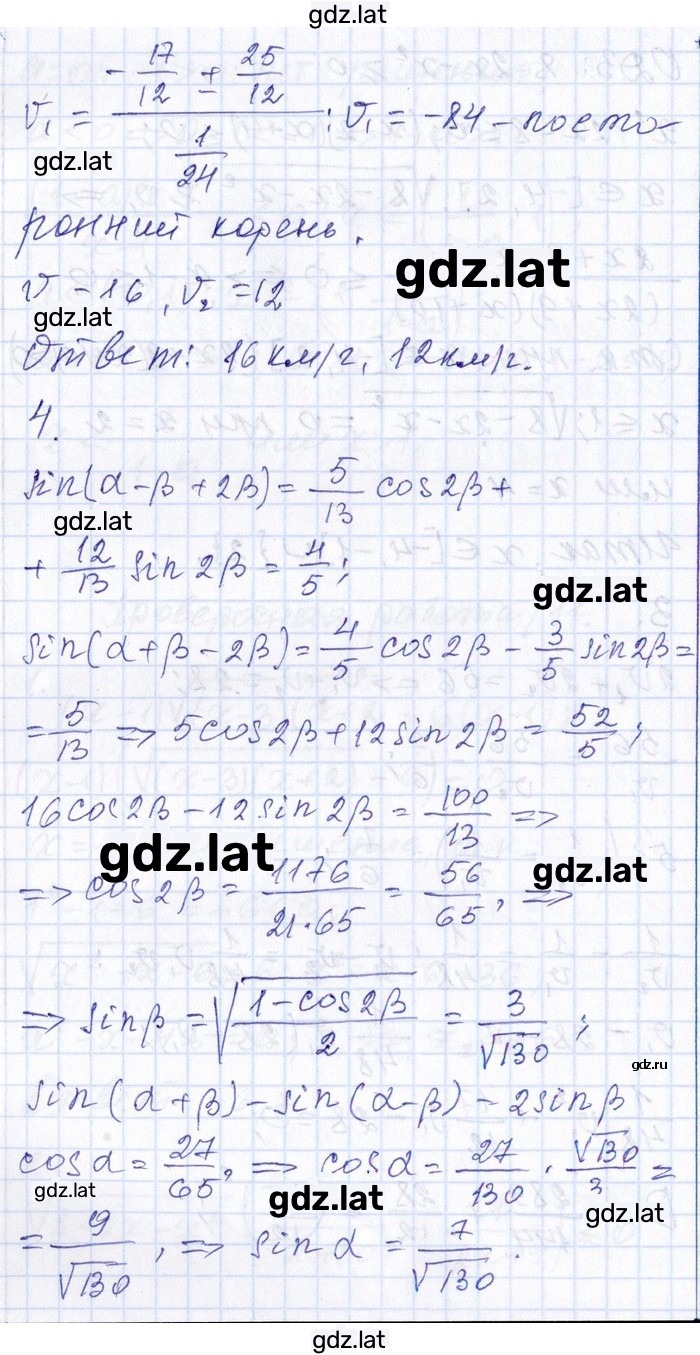 gdz.lat
v₁ = (-17/12 ± 25/12)/(1/24) ; v₁ = -84 - посто-
gdz.lat
ронний корень.
gdz.lat
v - 16, v₂ = 12
gdz.lat
Ответ: 16 км/г, 12 км/г.
4.
sin(α-β+2β) = 5/13 cos2β +
gdz.lat
+ 12/13 sin2β = 4/5;
gdz.lat
sin(α+β-2β) = 4/5 cos2β - 3/5 sin2β =
= 5/13 => 5cos2β + 12sin2β = 52/5;
16cos2β - 12sin2β = 100/13 =>
gdz.lat
gdz.lat
=> cos2β = 1176/(21·65) = 56/65, =>
=> sinβ = √((1-cos2β)/2) = 3/√130 ;
gdz.ru
sin(α+β) - sin(α-β) - 2sinβ
cosα = 27/65, => cosα = 27/130 · √130/3 =
gdz.lat
gdz.lat
gdz.lat
= 9/√130 , => sinα = 7/√130 .
gdz.lat